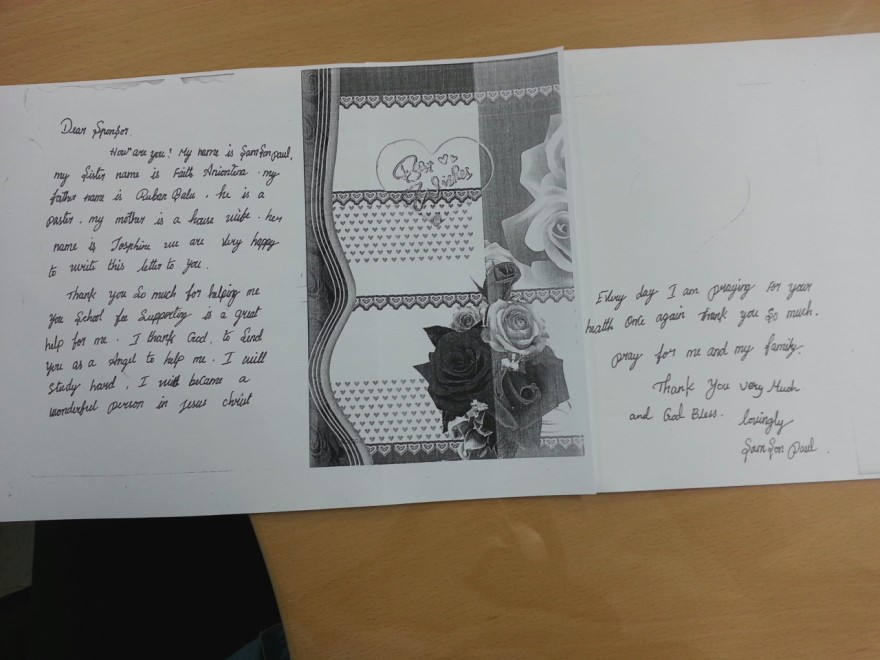 Dear Sponsor.
How are you? My name is SamSon paul,
my Sister name is Faith Aniontina. my
father name is Ruban Balu. he is a
paster. my mother is a house wife. her
name is Josphine we are very happy
to write this letter to you.
Thank you So much for helping me
you School fee Supporting is a great
help for me. I thank God. to Send
you as a Angel to help me. I will
Study hard. I will became a
wonderful person in jesus christ
Best
Wishes
Every day I am praying For your
health Once again thank you So much.
pray for me and my family.
Thank you very Much
and God Bless.
lovingly
SamSon paul.